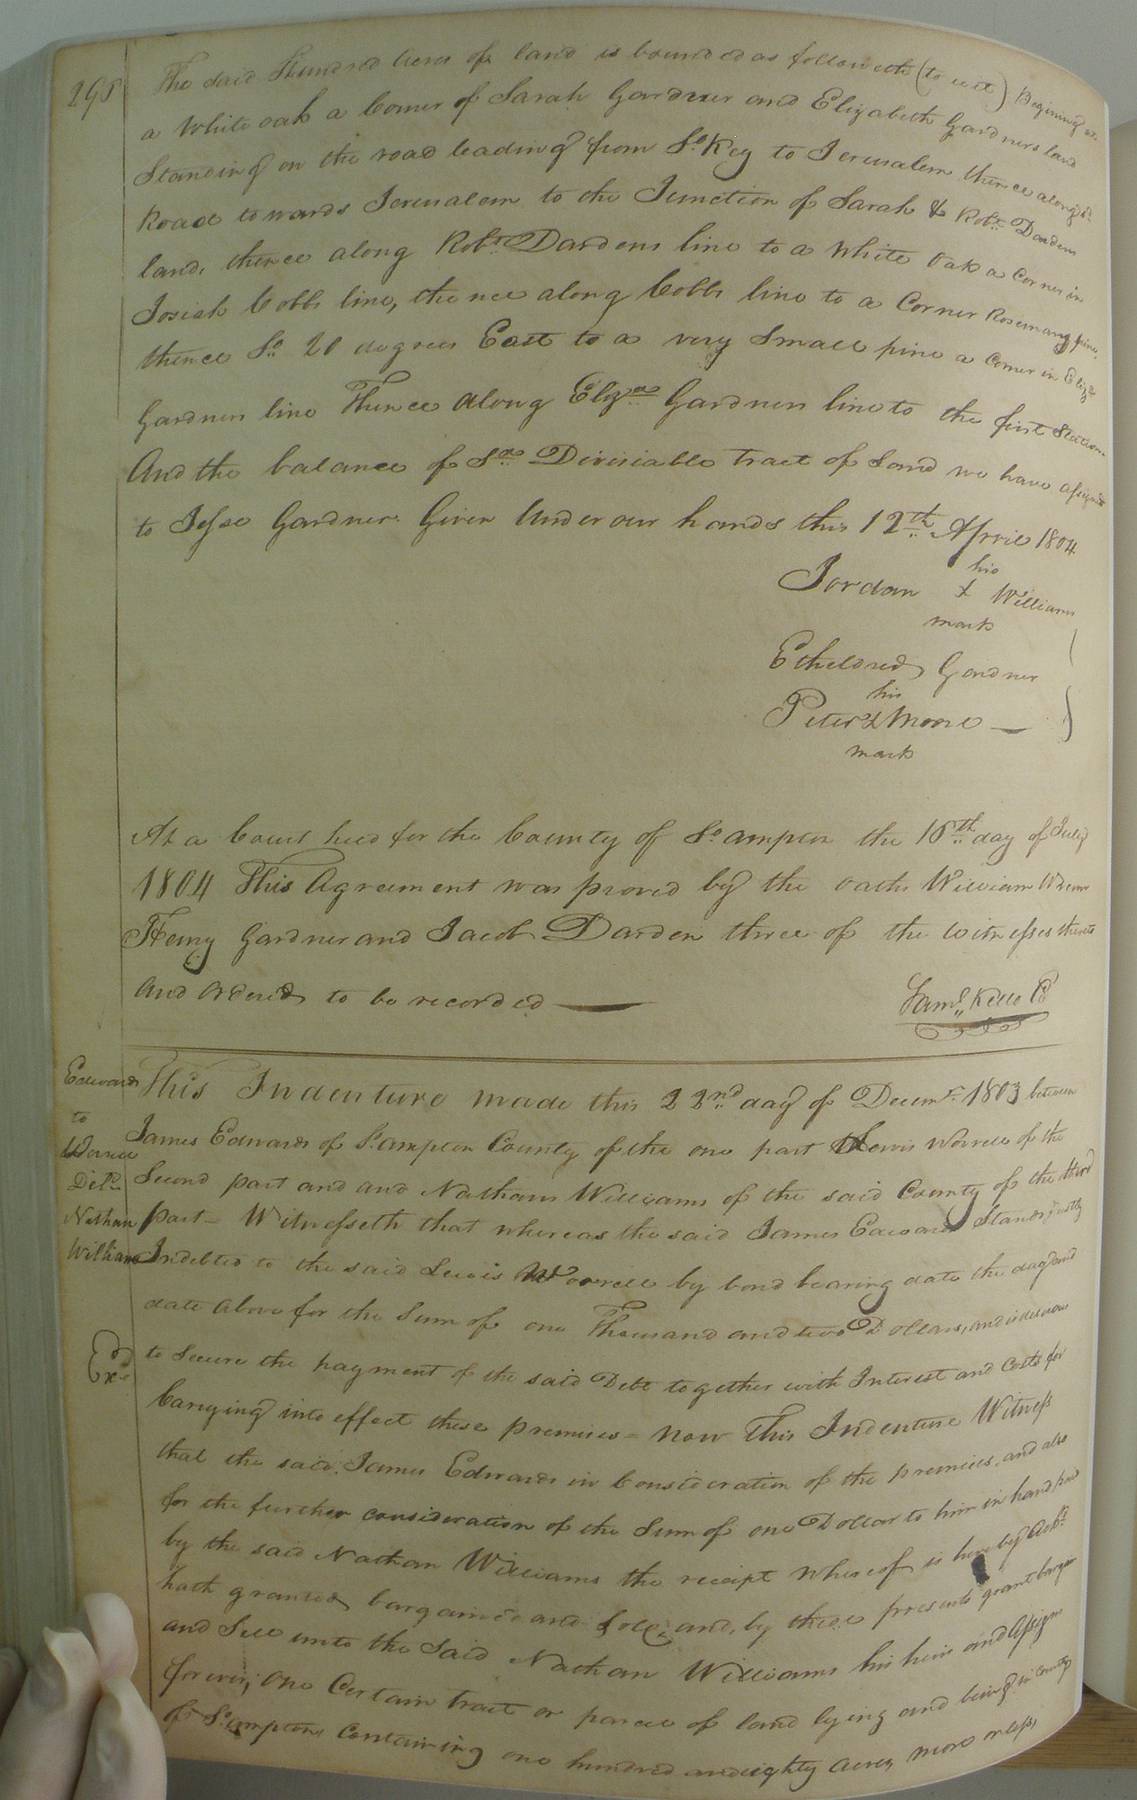 298
The said Hundred Acres of land is bounded as followeth (to wit) Begining at
a White oak a Corner of Sarah Gardner and Elizabeth Gardners land
Standing on the road leading from So Key to Jerusalem thence along sd
Road towards Jerusalem to the Junction of Sarah & Robt Dardens
land, thence along Robt Dardens line to a White Oak a Corner in
Josiah Cobbs line, thence along Cobbs line to a Corner Rosemary pine,
thence So 20 degrees East to a very Small pine a Corner in Eliza
Gardners line Thence along Eliza Gardners line to the first Station
And the balance of Sd Divisiable tract of Land we have assigned
to Jesse Gardner. Given Under our hands this 12th April 1804
his
Jordan x Williams
mark
Etheldred Gardner
his
Peter x Moore
mark
At a Court held for the County of So.ampton the 16th day of July
1804 This Agreement was proved by the oaths William Wrenn
Henry Gardner and Jacob Darden three of the Witnesses thereto
And ordered to be recorded
Saml Kello C
Edwards
to
Worrell
Deld
Nathan
Williams
Exd
This Indenture made this 22nd day of Decemr 1803 between
James Edwards of So.ampton County of the one part Lewis Worrell of the
Second part and and Nathan Williams of the said County of the third
part - Witnesseth that whereas the said James Edwards Stands justly
Indebted to the said Lewis Worrell by bond bearing date the day and
date above for the Sum of one Thousand and two Dollars, and is desirous
to Secure the payment of the said Debt together with Interest and Costs for
Carrying into effect these premises - now This Indenture Witness
that the said James Edwards in Consideration of the premises, and also
for the further consideration of the Sum of one Dollar to him in hand paid
by the said Nathan Williams the receipt whereof is hereby Ackd
hath granted bargained and Sold, and, by these presents grant bargain
and Sell unto the Said Nathan Williams his heirs and Assigns
forever, One Certain tract or parcel of land lying and being in County
of So.ampton Containing one hundred and eighty acres, more or less,